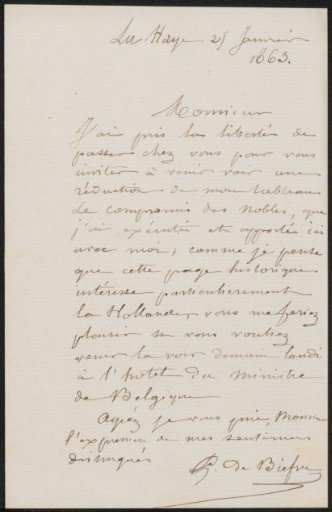 La Haye 25 Janvier
1863.
Monsieur
J'ai pris la liberté de
passer chez vous pour vous
inviter à venir voir une
réduction de mon tableau
le compromis des Nobles, que
j'ai exécutée et apportée ici
avec moi, comme je pense
que cette page historique
intéresse particulièrement
la Hollande, vous me feriez
plaisir si vous vouliez
venir la voir demain lundi
à l'hotel du Ministre
de Belgique
Agréez je vous prie, Monsieur
l'expression de mes sentimens
distingués
De Biefve